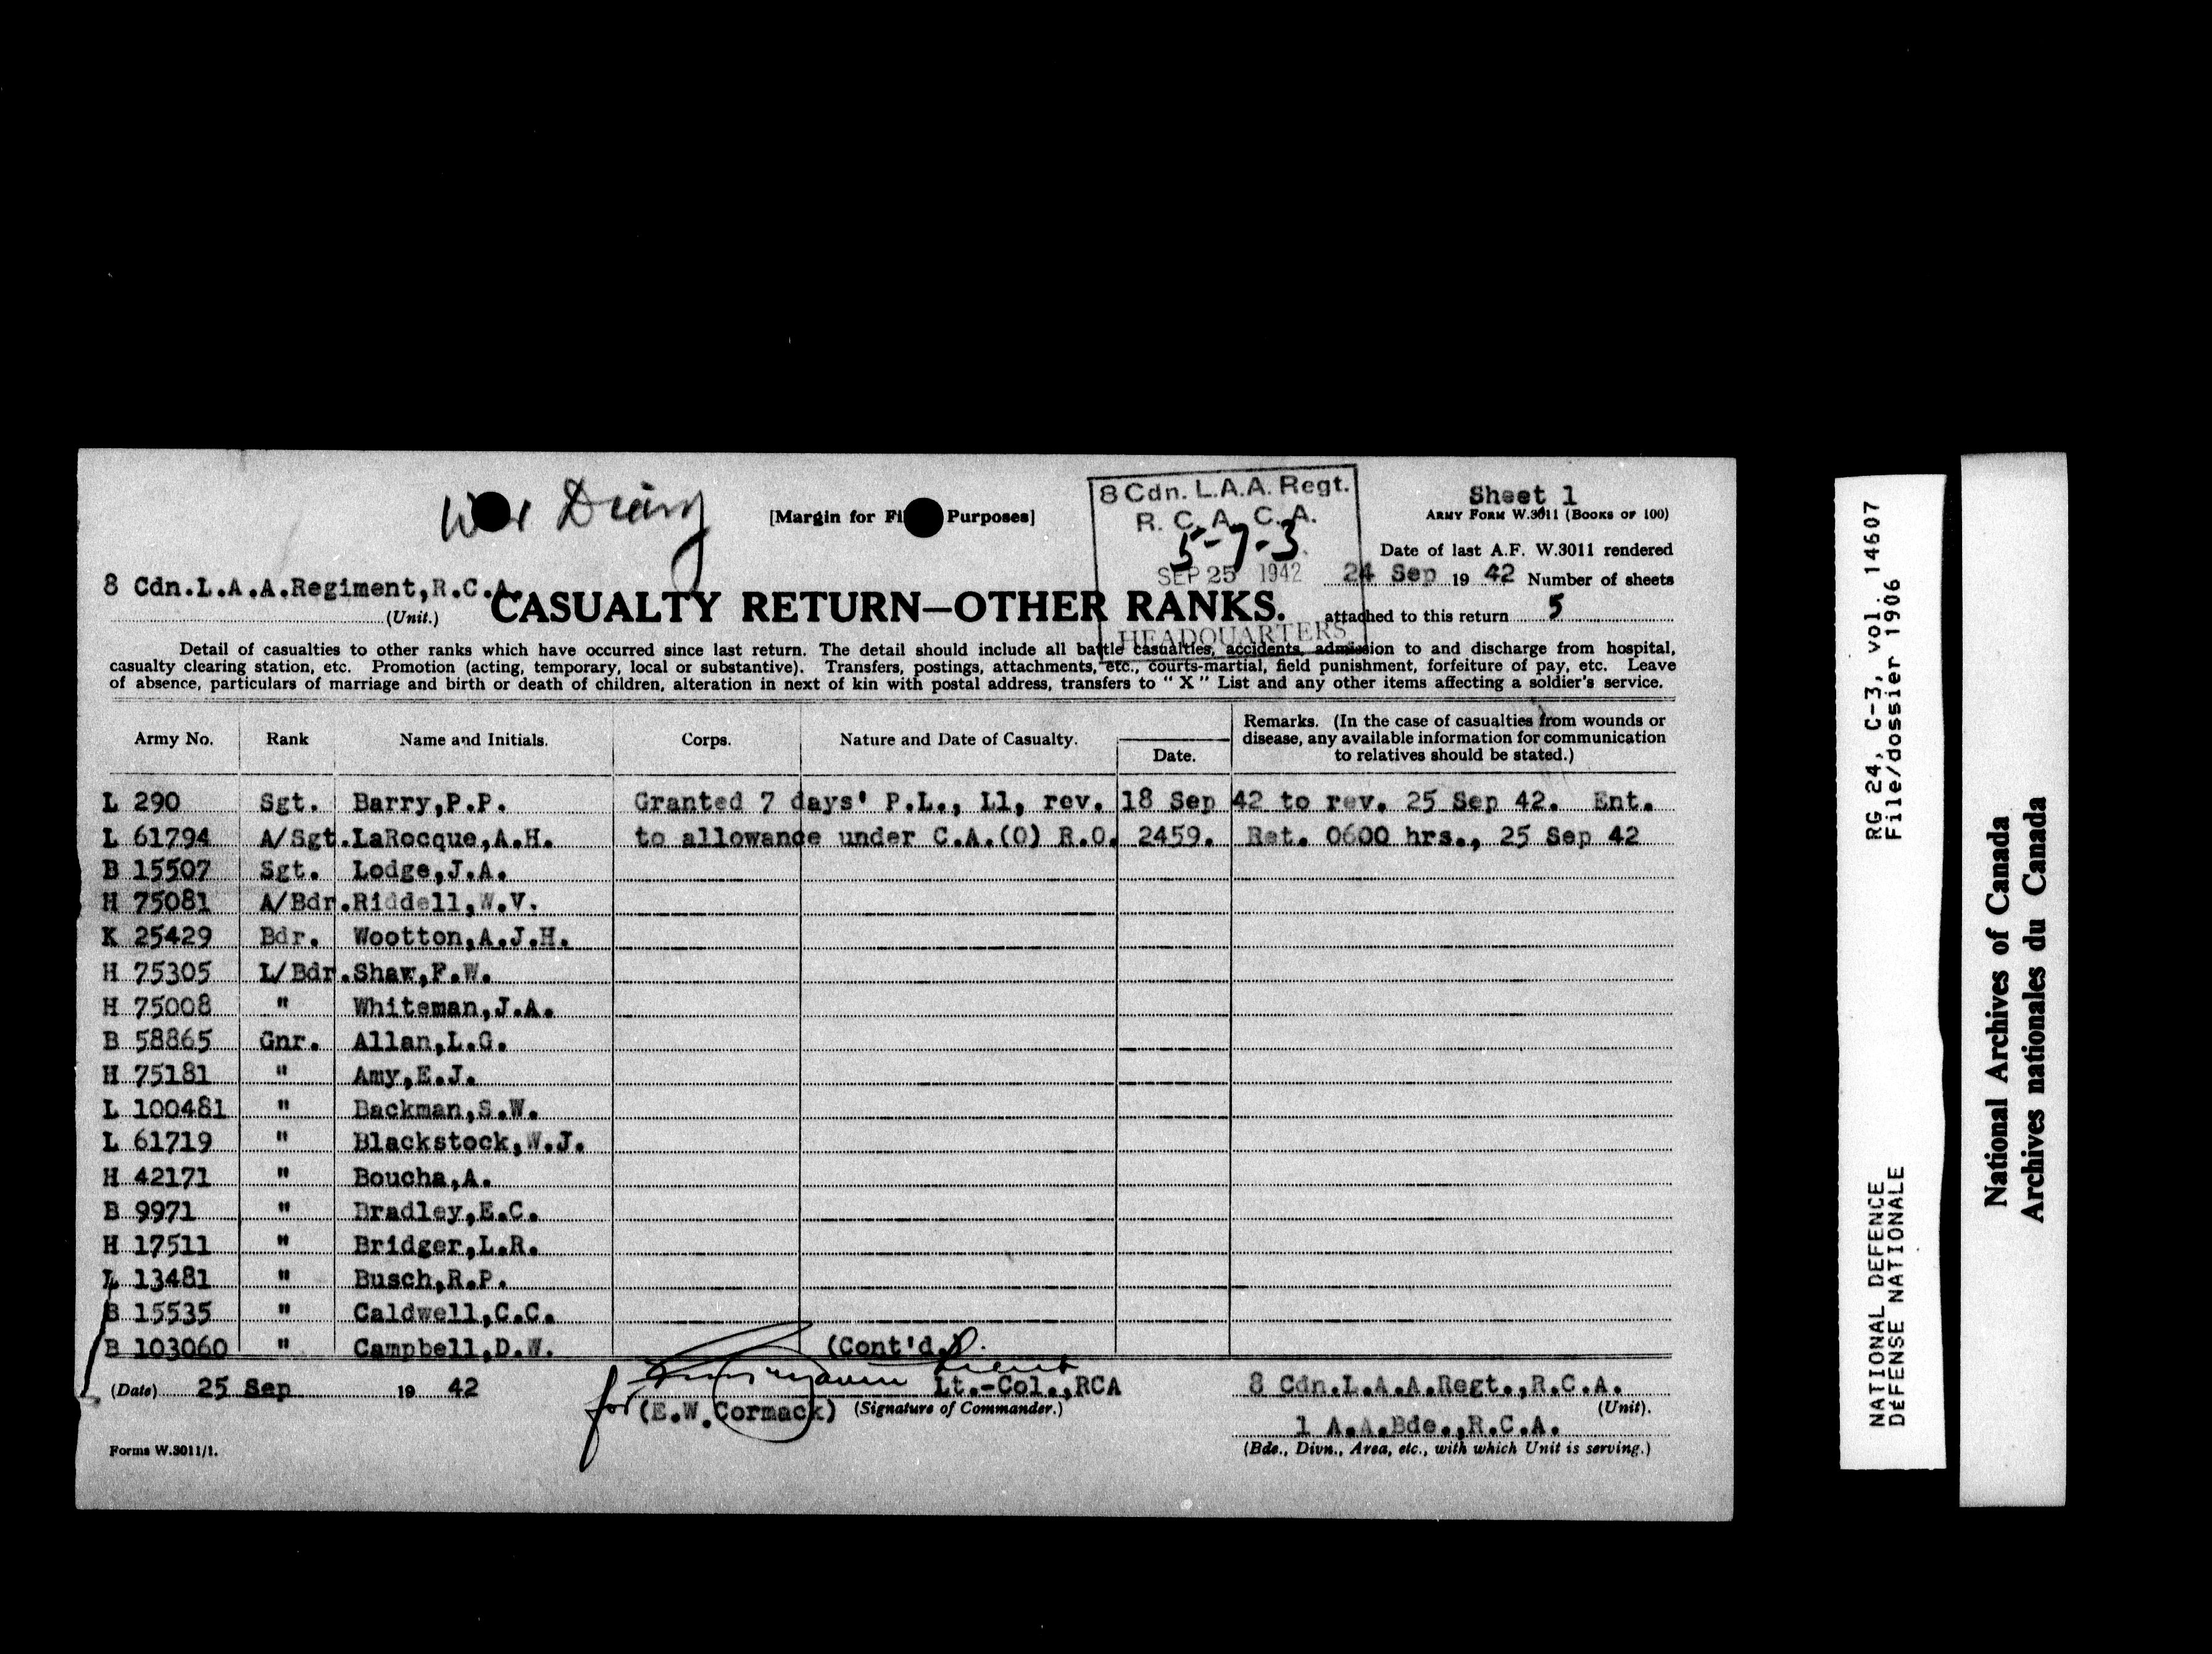 War Diary
[Margin for Fi Purposes]
8 Cdn. L.A.A. Regt.
R. C. A., C. A.
5-7-3
SEP 25 1942
HEADQUARTERS
Sheet 1
ARMY FORM W.3011 (BOOKS OF 100)
Date of last A.F. W.3011 rendered
24 Sep 19 42 Number of sheets
attached to this return 5
8 Cdn.L.A.A.Regiment,R.C.A.
(Unit.)
CASUALTY RETURN—OTHER RANKS.
Detail of casualties to other ranks which have occurred since last return. The detail should include all battle casualties, accidents, admission to and discharge from hospital,
casualty clearing station, etc. Promotion (acting, temporary, local or substantive). Transfers, postings, attachments, etc., courts-martial, field punishment, forfeiture of pay, etc. Leave
of absence, particulars of marriage and birth or death of children, alteration in next of kin with postal address, transfers to " X " List and any other items affecting a soldier's service.
Army No. Rank Name and Initials. Corps. Nature and Date of Casualty. Date. Remarks. (In the case of casualties from wounds or
disease, any available information for communication
to relatives should be stated.)
L 290 Sgt. Barry,P.P. Granted 7 days' P.L., L1, rev. 18 Sep 42 to rev. 25 Sep 42. Ent.
L 61794 A/Sgt.LaRocque,A.H. to allowance under C.A.(O) R.O. 2459. Ret. 0600 hrs., 25 Sep 42
B 15507 Sgt. Lodge,J.A.
H 75081 A/Bdr.Riddell,W.V.
K 25429 Bdr. Wootton,A.J.H.
H 75305 L/Bdr.Shaw,F.W.
H 75008 " Whiteman,J.A.
B 58865 Gnr. Allan,L.G.
H 75181 " Amy,E.J.
L 100481 " Backman,S.W.
L 61719 " Blackstock,W.J.
H 42171 " Boucha,A.
B 9971 " Bradley,E.C.
H 17511 " Bridger,L.R.
L 13481 " Busch,R.P.
B 15535 " Caldwell,C.C.
B 103060 " Campbell,D.W. (Cont'd.)
(Date) 25 Sep 19 42
for Lieut
Lt.-Col.,RCA
(E.W.Cormack) (Signature of Commander.)
8 Cdn.L.A.A.Regt.,R.C.A.
(Unit).
1 A.A.Bde.,R.C.A.
(Bde., Divn., Area, etc., with which Unit is serving.)
Forms W.3011/1.
RG 24, C-3, vol. 14607
File/dossier 1906
NATIONAL DEFENCE
DÉFENSE NATIONALE
National Archives of Canada
Archives nationales du Canada